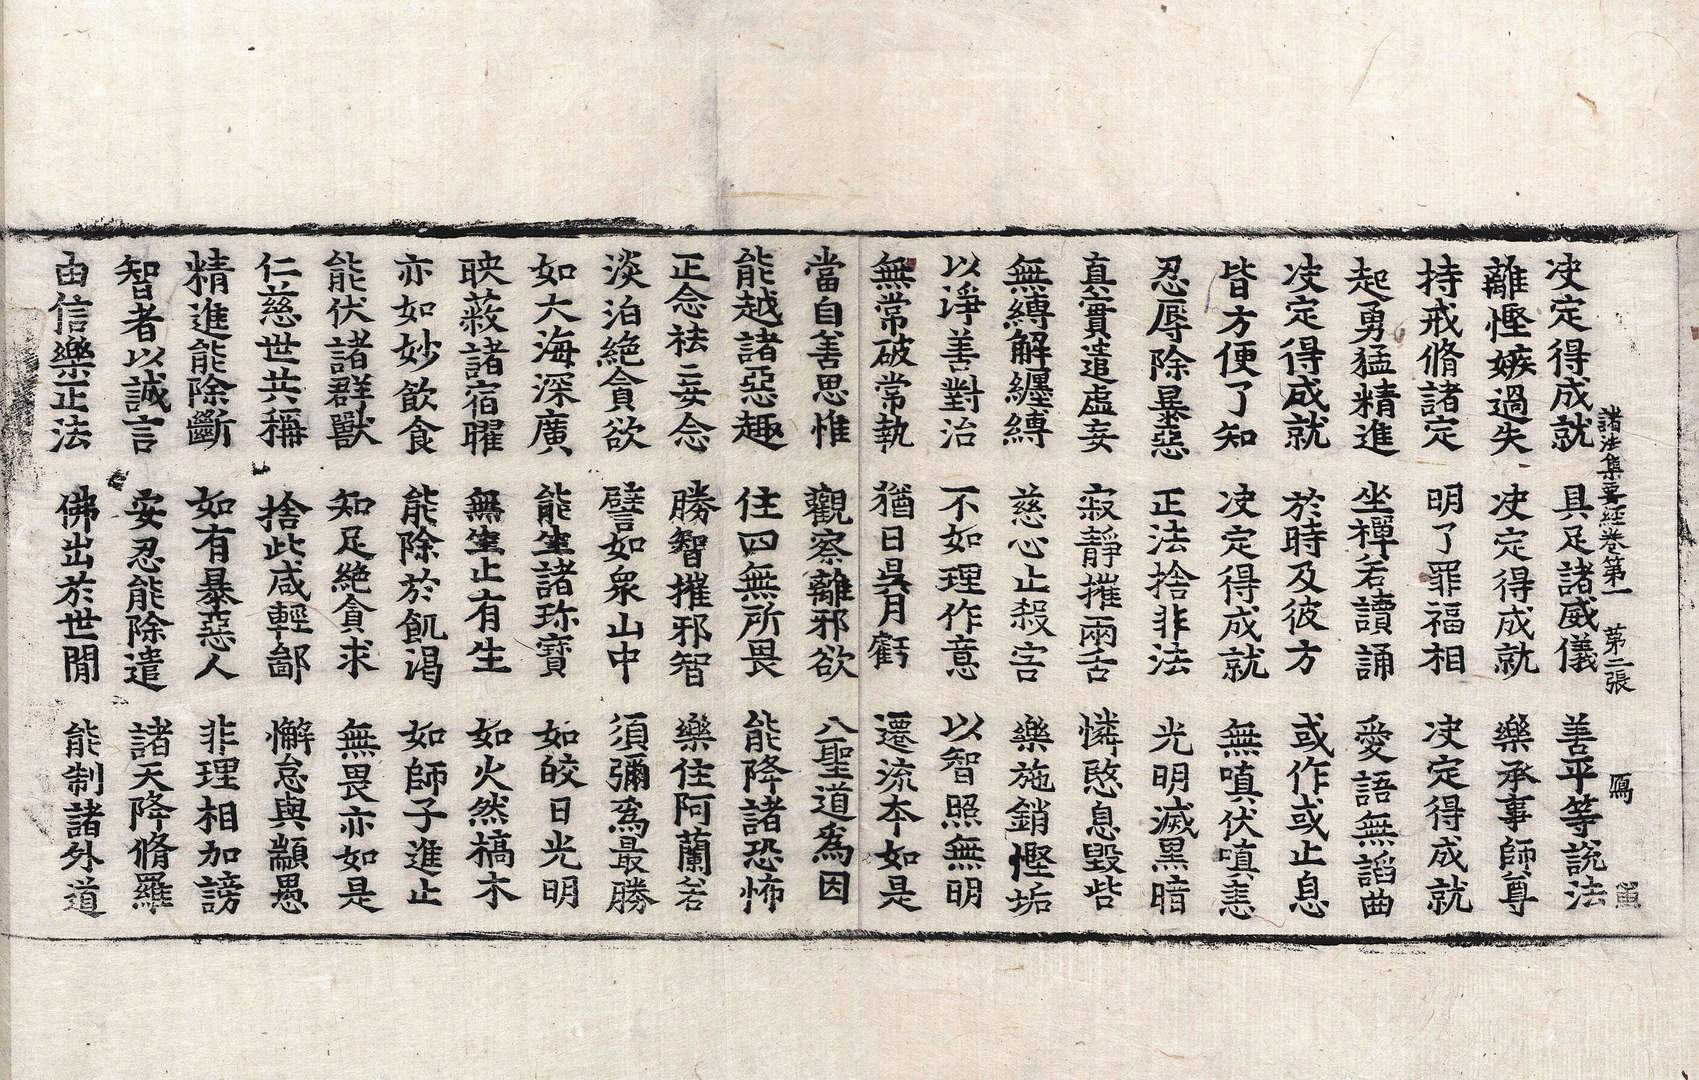 諸法集要經卷第一 第二張 鴈
決定得成就 具足諸威儀 善平等說法
離慳嫉過失 決定得成就 樂承事師尊
持戒脩諸定 明了罪福相 決定得成就
起勇猛精進 坐禪若讀誦 愛語無諂曲
決定得成就 於時及彼方 或作或止息
皆方便了知 決定得成就 無嗔伏嗔恚
忍辱除暴惡 正法捨非法 光明滅黑暗
真實遣虛妄 寂靜摧兩舌 憐愍息毀呰
無縛解纏縛 慈心止殺害 樂施銷慳垢
以淨善對治 不如理作意 以智照無明
無常破常執 猶日昃月虧 遷流夲如是
當自善思惟 觀察離邪欲 八聖道為因
能越諸惡趣 住四無所畏 能降諸恐怖
正念袪妄念 勝智摧邪智 樂住阿蘭若
淡泊絶貪欲 譬如衆山中 須彌為最勝
如大海深廣 能生諸珎寶 如皎日光明
映蔽諸宿曜 無生止有生 如火然槁木
亦如妙飲食 能除於飢渴 如師子進止
能伏諸群獸 知足絶貪求 無畏亦如是
仁慈世共稱 捨此咸輕鄙 懈怠與顓愚
精進能除斷 如有暴惡人 非理相加謗
智者以誠言 安忍能除遣 諸天降脩羅
由信樂正法 佛出於世閒 能制諸外道